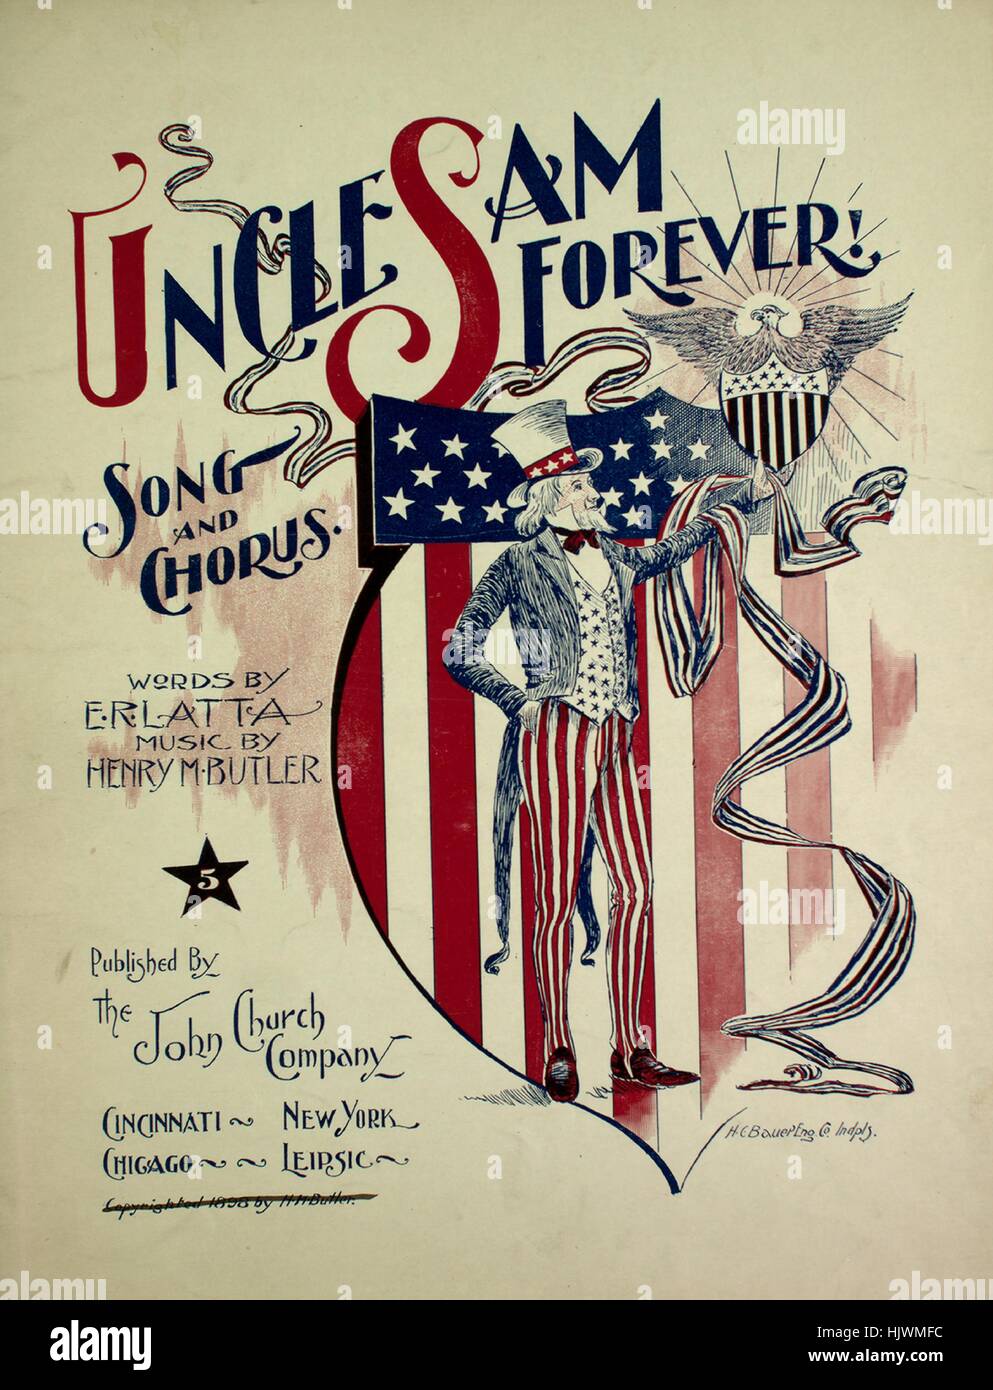 UNCLE SAM
FOREVER!
SONG
AND
CHORUS.
WORDS BY
E.R.LATTA
MUSIC BY
HENRY M.BUTLER
5
Published By
The John Church
Company
CINCINNATI NEW YORK
CHICAGO LEIPSIC
Copyrighted 1898 by H.M.Butler.
H.C.Bauer Eng Co. Indpls.
alamy
alamy
Image ID: HJWMFC
www.alamy.com